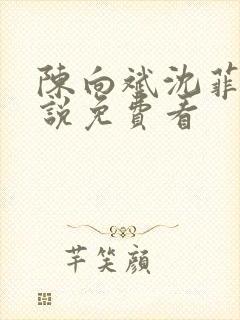 陳向斌沈菲
說免費看
芊笑顏